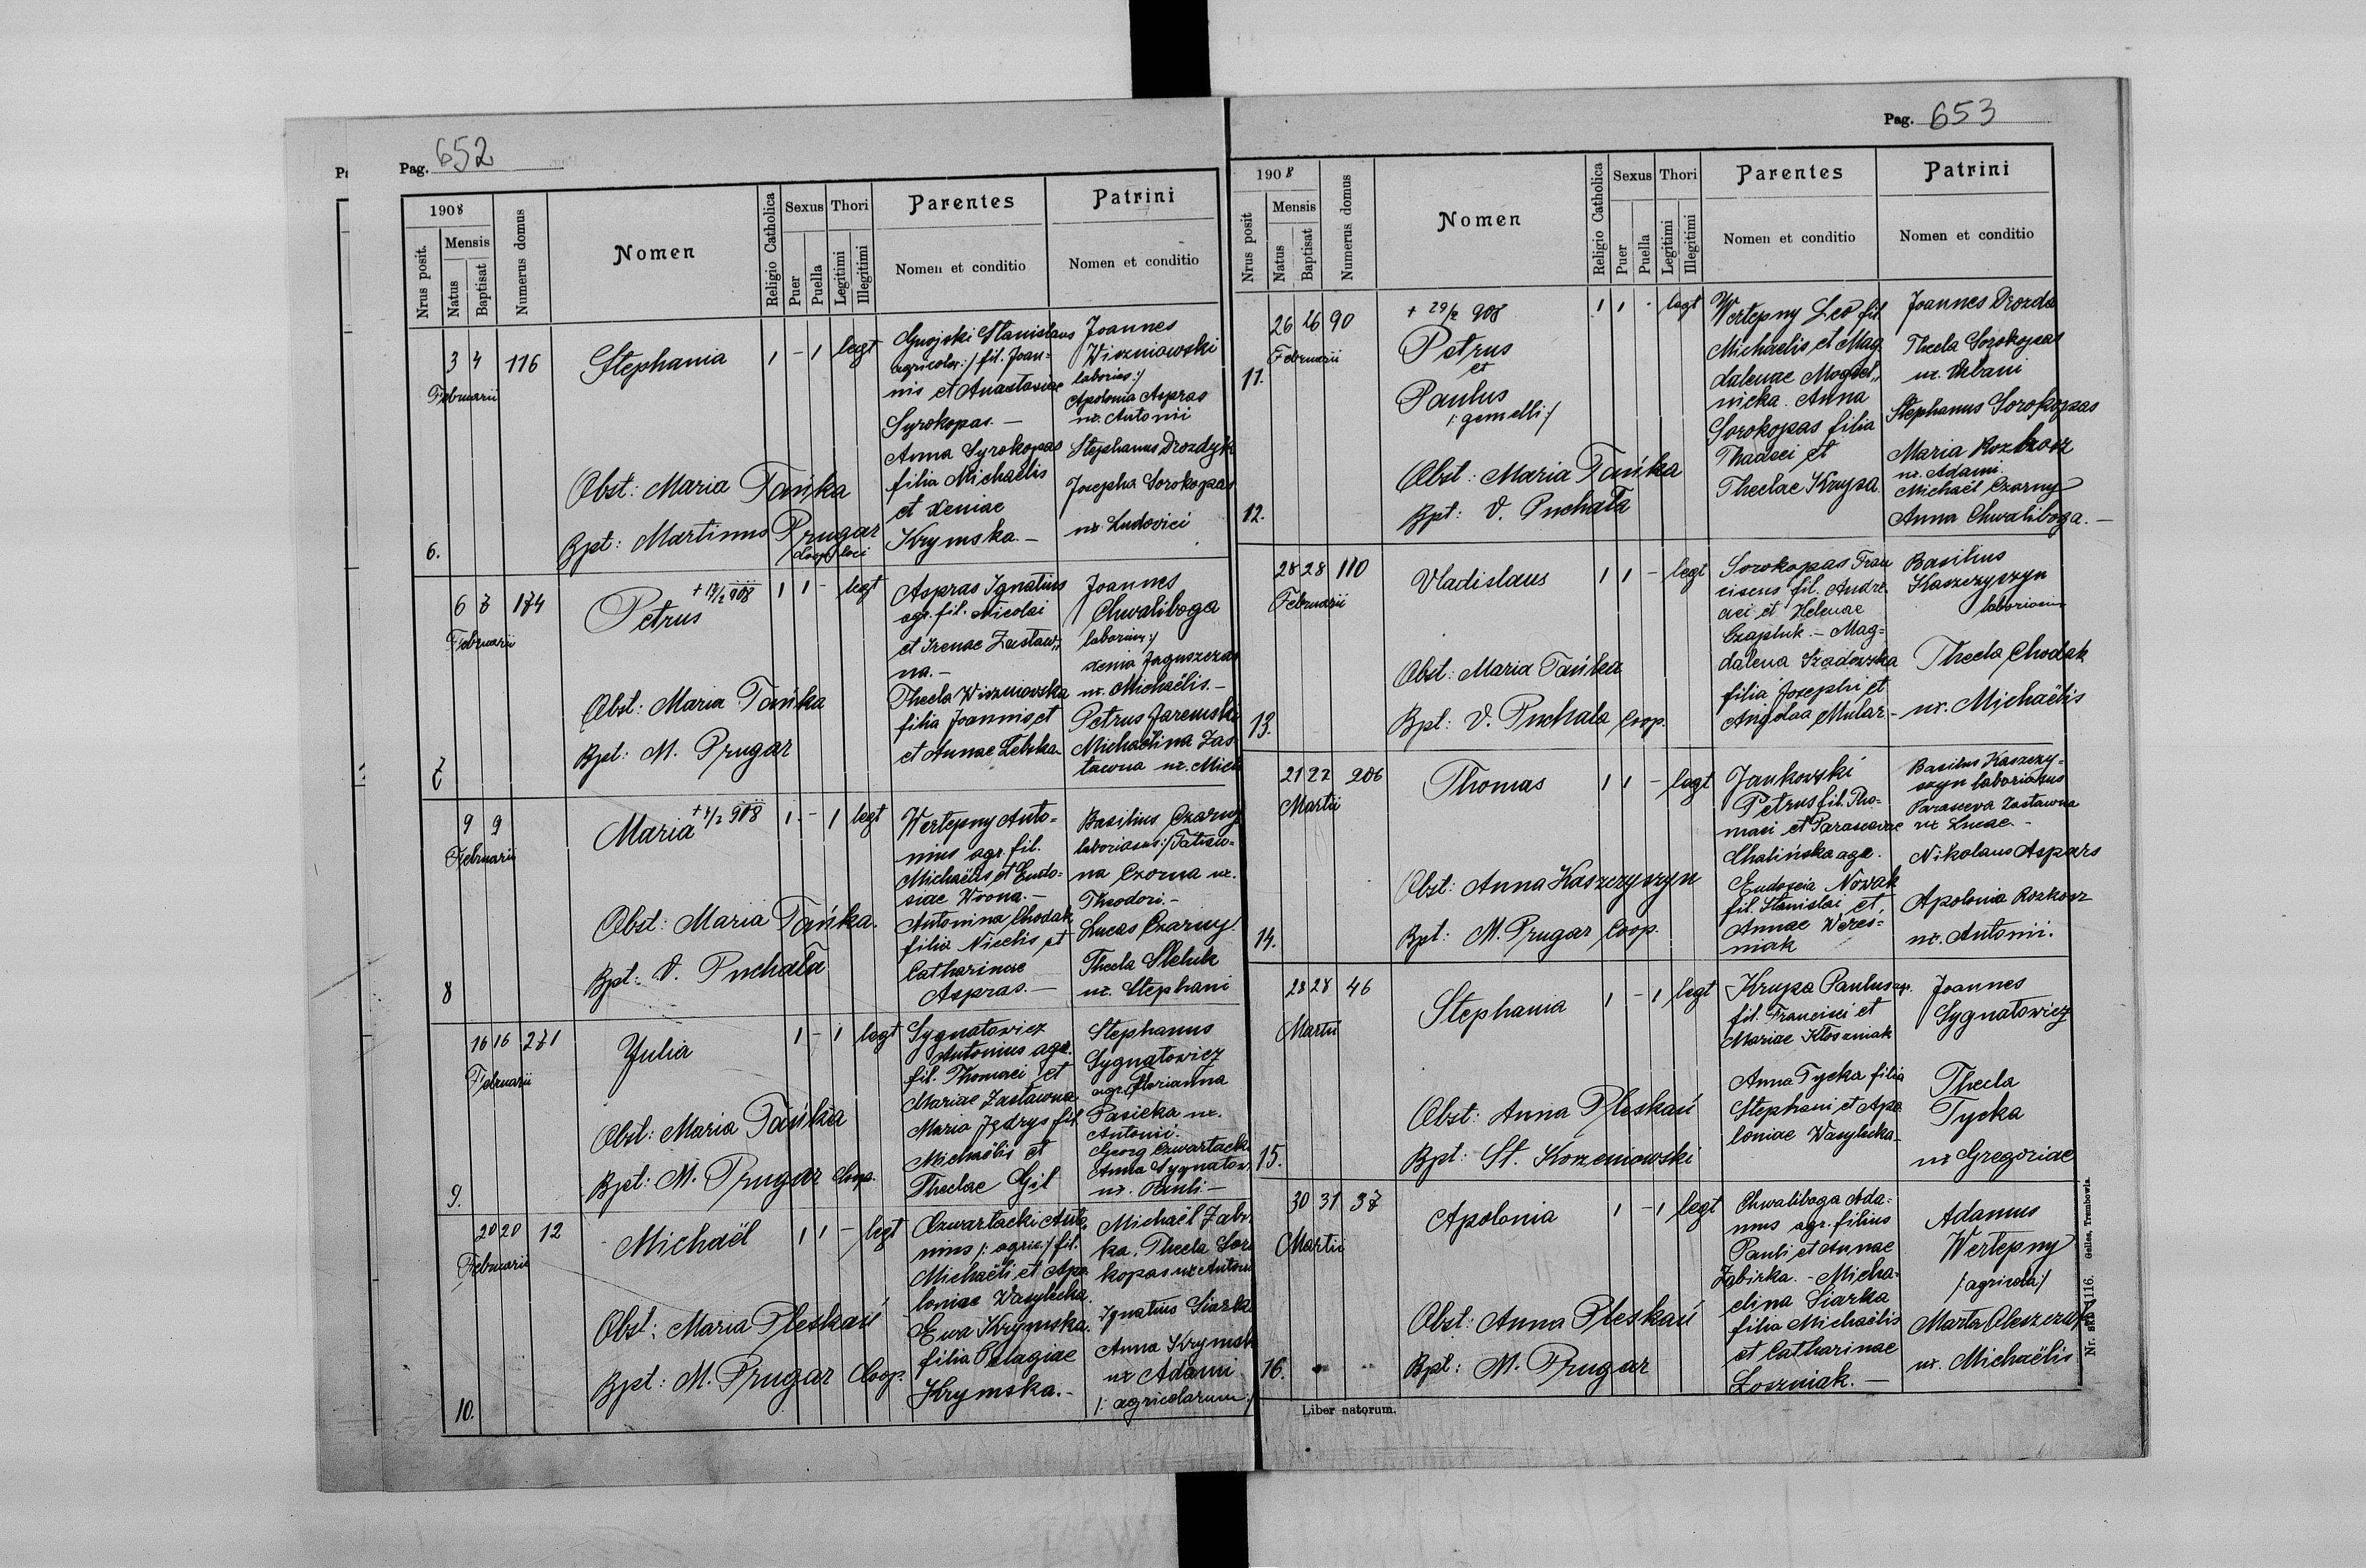 Pag. 652
1908
Nrus posit.
Mensis
Natus
Baptisat
Numerus domus
Nomen
Religio Catholica
Sexus
Puer
Puella
Thori
Legitimi
Illegitimi
Parentes
Nomen et conditio
Patrini
Nomen et conditio
6.
3 4 116
Februarii
Stephania
1 - 1 legt
Obst: Maria Tańka
Bpt: Martinus Prugar
Coop. loci
Gnojski Stanislaus
agricolar:/ fil. Joan=
nis et Anastasiae
Syrokopas. -
Anna Syrokopas
filia Michaëlis
et Xeniae
Krymska. -
Joannes
Wiszniowski
laborius:/
Apolonia Aspras
ux. Antonii
Stephanus Drozdyk
Josepha Sorokopas
ux. Ludovici
7
6 7 174
Februarii
+ 17/2 908
Petrus
1 1 - legt
Obst: Maria Tańka
Bpt: M. Prugar
Aspras Ignatius
agr. fil. Nicolai
et Irenae Zastaw„
na. -
Thecla Wiszniowska
filia Joannis et
et Annae Zebzka
Joannes
Chwaliboga
laborius:/
Xenia Jaguszczak
ux. Michaëlis. -
Petrus Jaremski
Michaëlina Zas-
tawna ux. Mich
8
9 9
Februarii
Maria
1 - 1 legt
Obst: Maria Tańka.
Bpt: V. Puchała
Wertepny Anto=
nius agr. fil.
Michaëlis et Eudo=
siae Wrona. -
Antonina Chodak
filia Niechis et
Catharinae
Aspras. -
Basilius Czarny
laboriosus:/ Tatian=
na Czorna ux.
Theodori. -
Lucas Czarny
Thecla Sleluk
ux. Stephani
9.
16 16 271
Februarii
Julia
1 - 1 legt
Obst: Maria Tańka
Bpt: M. Prugar Coop.
Sygnatowicz
Antonius agr.
fil. Thomaei et
Mariae Zastawna
Maria Jędrys fil.
Michaëlis et
Theclae Gil
Stephanus
Sygnatowicz
agr. Florianna
Pasieka ux.
Antonii.
Georg Czwartacki
Anna Sygnatow
ux. Pauli -
10.
20 20 12
Februarii
Michaël
1 1 - legt
Obst: Maria Pleskań
Bpt: M. Prugar Coop.
Czwartacki Anto„
nius /: agric:/ fil.
Michaëli et Apo
loniae Wasylecka.
Ewa Krymska.
filia Pelagiae
Krymska. -
Michaël Zabir
ka, Thecla Soro
kopas ux Antoni
Ignatius Siarka
Anna Krymsk
ux Adami
/: agricolarum:/
Pag. 653
1908
Nrus posit
Mensis
Natus
Baptisat
Numerus domus
Nomen
Religio Catholica
Sexus
Puer
Puella
Thori
Legitimi
Illegitimi
Parentes
Nomen et conditio
Patrini
Nomen et conditio
11.
12.
26 26 90
Februarii
+ 29/2 908
Petrus
et
Paulus
/: gemelli:/
1 1 - legt
Obst: Maria Tańka
Bpt: V. Puchała
Wertepny Leo fil.
Michaelis et Mag
dalenae Mogiel„
nicka. Anna
Sorokopas filia
Thadaei et
Theclae Krupa
Joannes Drozda
Thecla Sorokopas
ux. Urbani
Stephanus Sorokopas
Maria Rozkosz
ux. Adami.
Michaël Czarny
Anna Chwaliboga. -
13.
28 28 110
Februarii
Vladislaus
1 1 - legt
Obst: Maria Tańka
Bpt: V. Puchala Coop.
Sorokopas Fran
ciscus fil. Andre
aei et Helenae
Czapluk. - Mag=
dalena Szadowska
filia Josephi et
Angelaa Mular -
Basilius
Kaszczyszyn
Thecla Chodak
ux. Michaëlis
14.
21 22 206
Martii
Thomas
1 1 - legt
Obst: Anna Kaszczyszyn
Bpt: M. Prugar Coop.
Jankowski
Petrus fil. Tho-
maei et Parascevae
Chalińska agr.
Eudoxia Nowak
fil. Stanislai et
Annae Weres=
niak
Basilus Kaszczy-
szyn laboriosus
Parasceva Zastawna
ux Lucae. -
Nikolaus Aspars
Apolonia Rozkosz
ux. Antonii.
15.
28 28 46
Martii
Stephania
1 - 1 legt
Obst: Anna Pleskań
Bpt: St. Korzeniowski
Krupa Paulus agr.
fil. Francisci et
Mariae Kłoszniak
Anna Tycka filia
Stephani et Apo
loniae Wasylecka -
Joannes
Sygnatowicz
Thecla
Tycka
ux Gregoriae
16.
30 31 37
Martii
Apolonia
1 - 1 legt
Obst: Anna Pleskań
Bpt: M. Prugar
Chwaliboga Ada=
mus agr. filius
Pauli et Annae
Zabirka. - Micha-
elina Siarka
filia Michaëlis
et Catharinae
Łoszniak. -
Adamus
Wertepny
/: agricola:/
Marta Oleszczuk
ux. Michaëlis
Liber natorum.
Gelles, Trembowla.